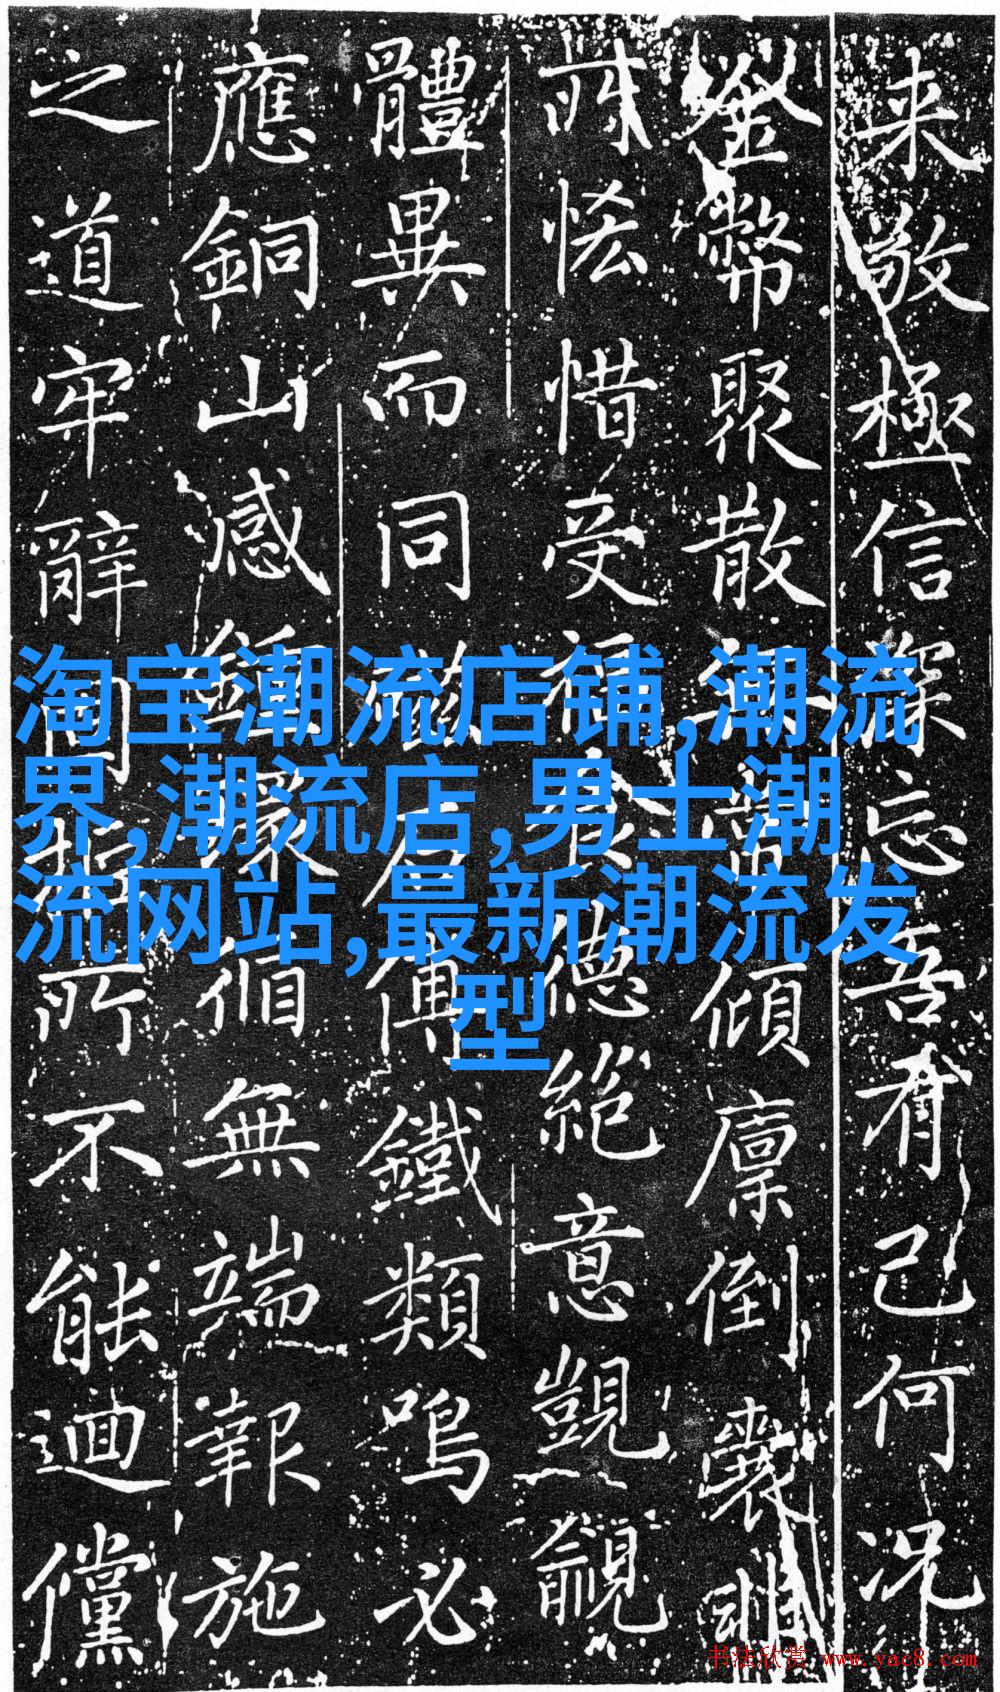 来敬極信深忘吾有己何况
幣聚散傾廩倒囊
所恡惜受德絕意覬覦
體異而同傅鐵類鳴必
應銅山感無端報施
之道牢辭固拒所不能迴儻
淘宝潮流店铺,潮流
界,潮流店,男士潮
流网站,最新潮流发
型
书法欣赏 www.yac8.com